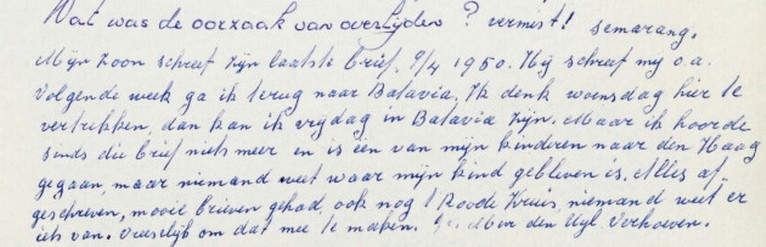 Wat was de oorzaak van overlijden? vermist! Semarang.
Mijn zoon schreef zijn laatste brief. 9/4 1950. Hij schreef mij o.a.
Volgende week ga ik terug naar Batavia. Ik denk woensdag hier te
vertrekken, dan kan ik vrijdag in Batavia zijn. Maar ik hoorde
sinds die brief niets meer en is één van mijn kinderen naar den Haag
gegaan, maar niemand weet waar mijn kind gebleven is. Alles af-
geschreven, mooie brieven gehad, ook nog 't Roode Kruis, niemand weet er
iets van. Vreselijk om dat mee te maken. den Uyl. Verhoeven.